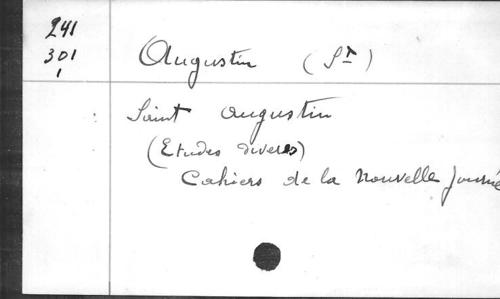 241
301
1
Augustin (St)
Saint Augustin
(Etudes diverses)
Cahiers de la Nouvelle Journé